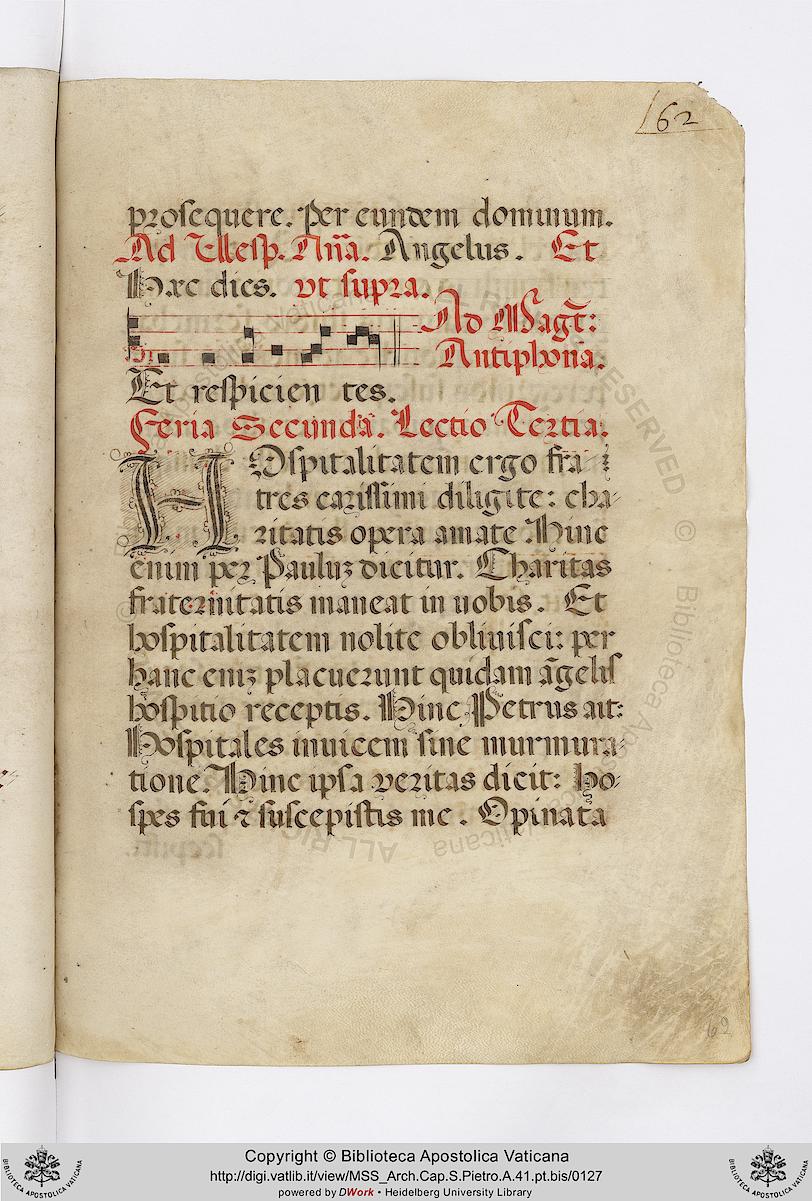 62
prosequere. Per eundem dominum.
Ad Vesp. Ana. Angelus. Et
Hæc dies. vt supra.
Ad Magt:
Antiphona.
Et respicien tes.
Feria Secunda. Lectio Tertia.
HOspitalitatem ergo fra-
tres carissimi diligite: cha-
ritatis opera amate. Hinc
enim per Pauluz dicitur. Charitas
fraternitatis maneat in uobis. Et
hospitalitatem nolite obliuisci: per
hanc eniz placuerunt quidam ãgelis
hospitio receptis. Hinc Petrus ait:
Hospitales inuicem sine murmura-
tione. Hinc ipsa veritas dicit: Ho-
spes fui ⁊ suscepistis me. Opinata
62
Copyright © Biblioteca Apostolica Vaticana
http://digi.vatlib.it/view/MSS_Arch.Cap.S.Pietro.A.41.pt.bis/0127
powered by DWork • Heidelberg University Library